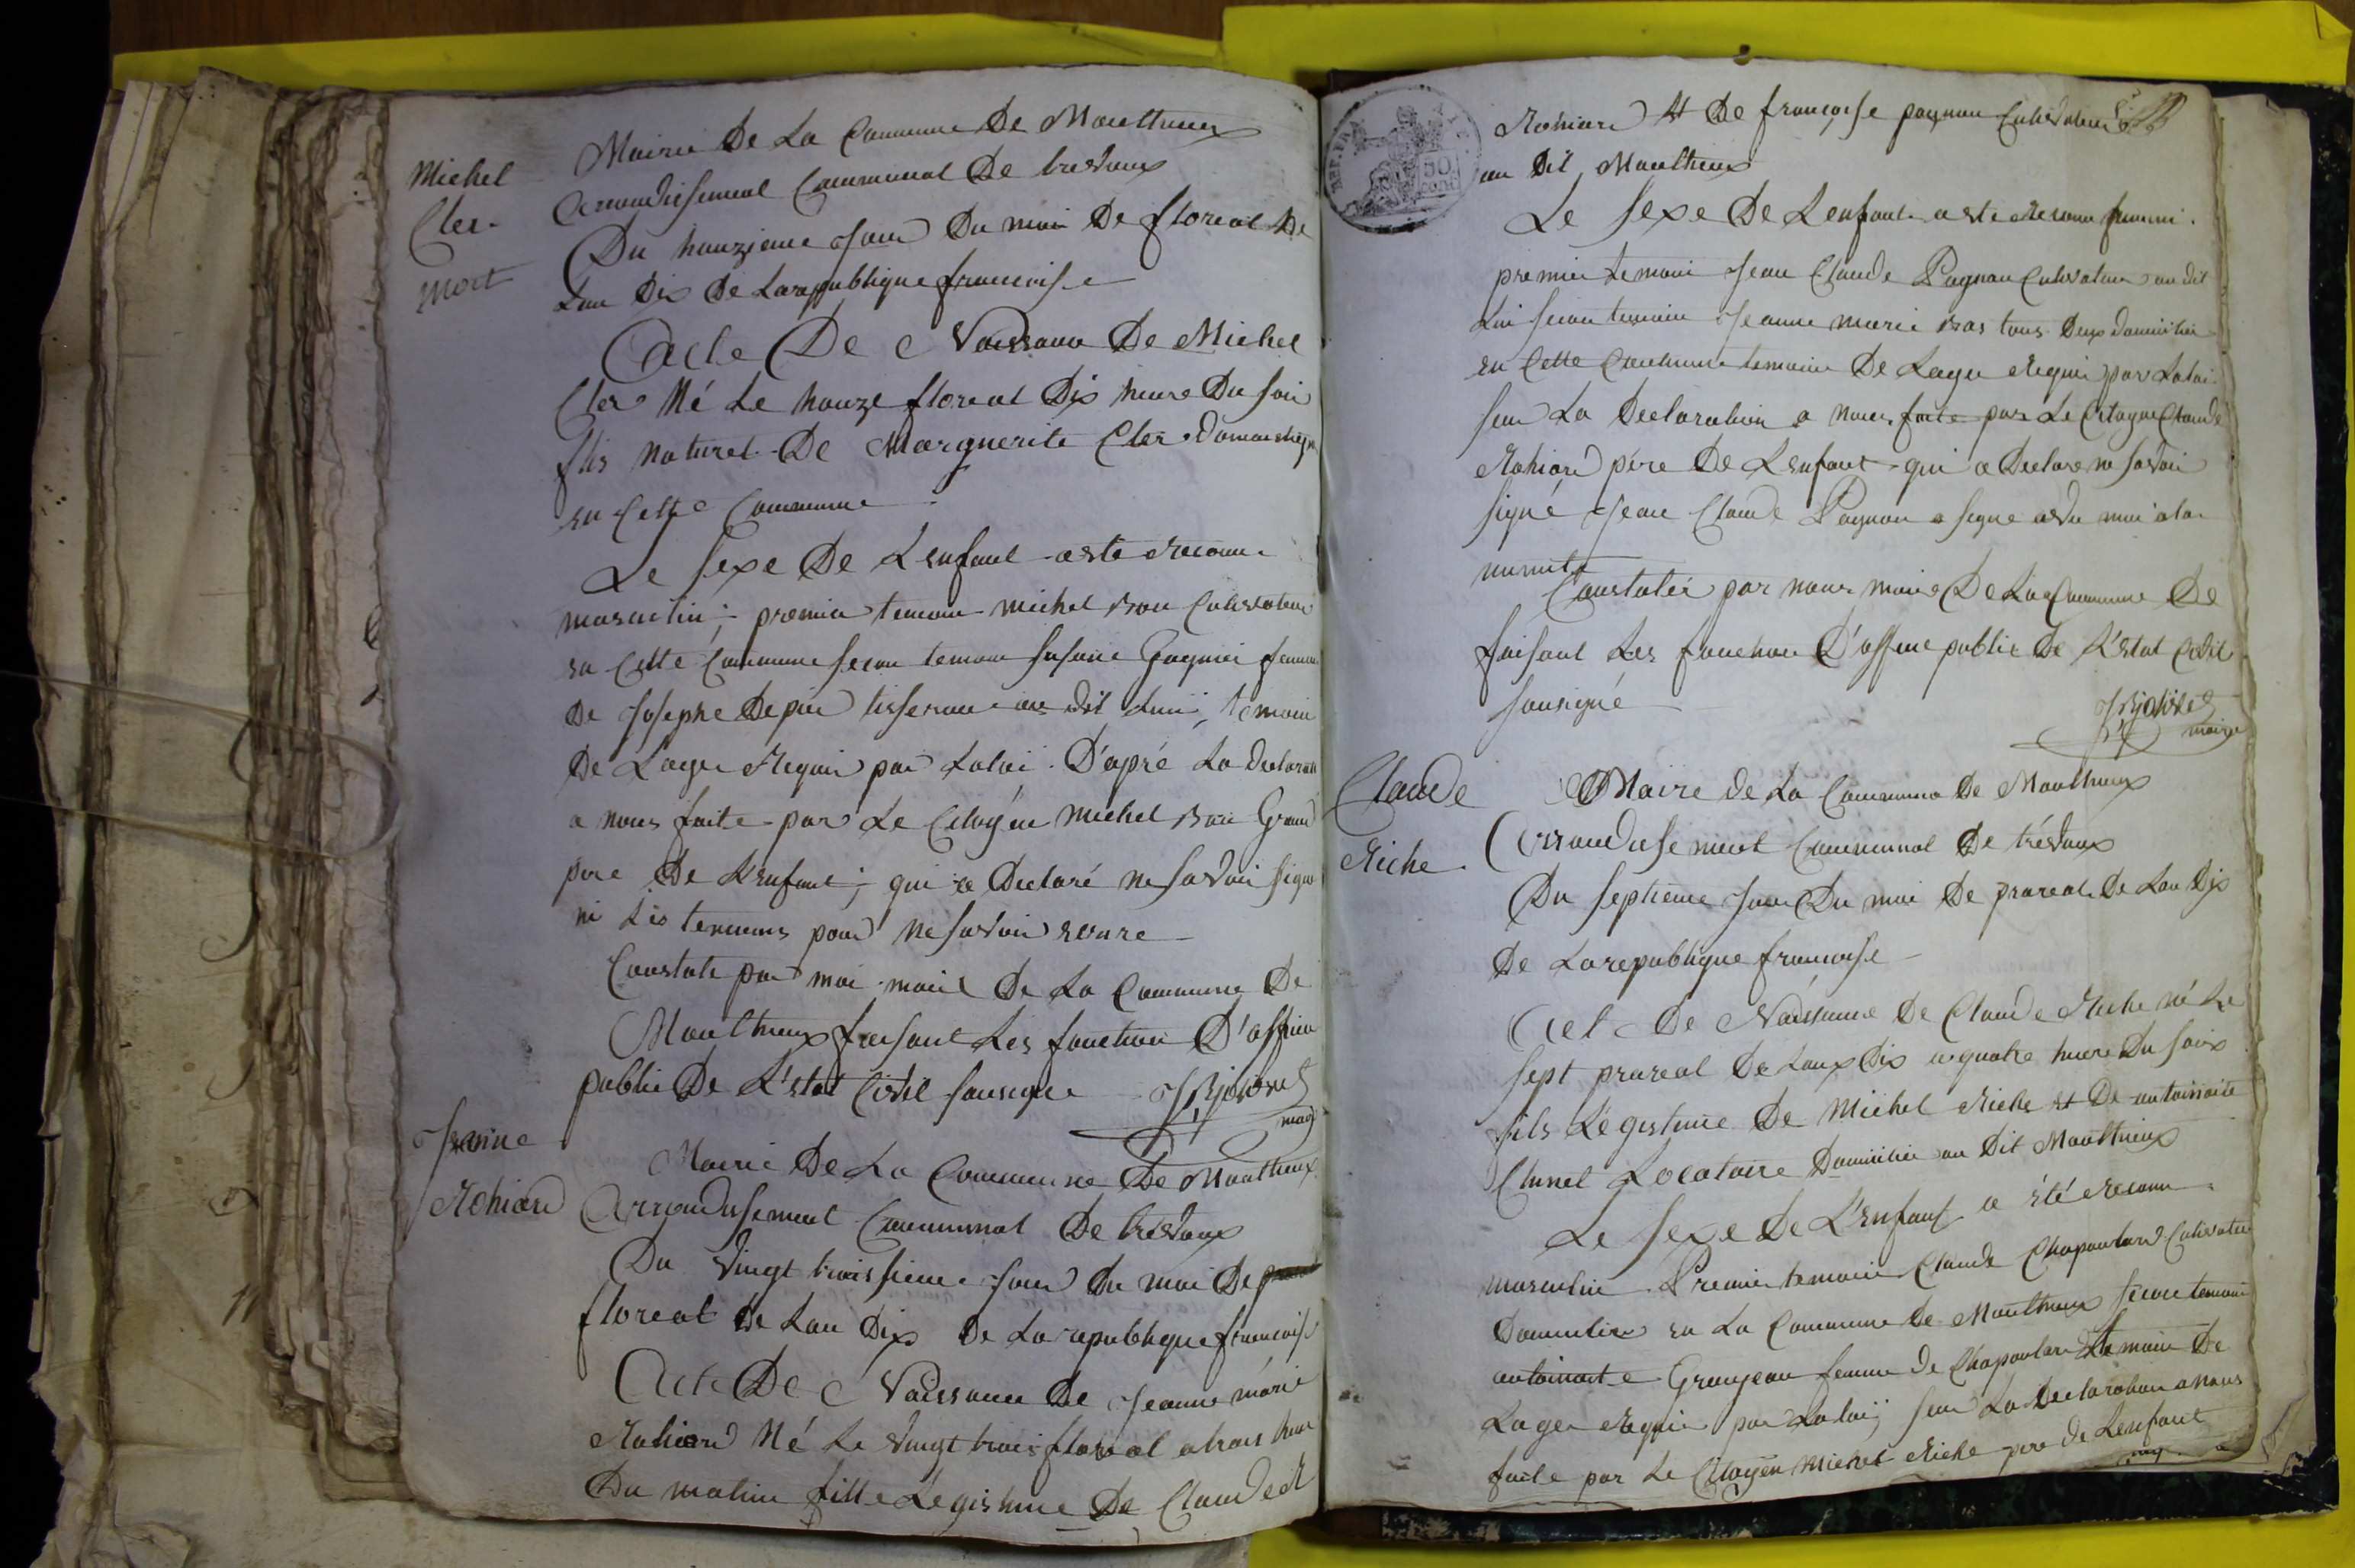 Michel
Cler
mort
Mairie De La Commune De Monthieux
Arrondisement Communal De trevoux
Du honzieme Jour Du moi De floreal De
Lan Dix De La republique francoise
Acte De Naissance De Michel
Cler Né Le honze floreal Dix heure Du soir
fils naturel De Marguerite Cler Domestique
en Cette Commune
Le sexe De Lenfant a este reconu
masculin; premier temoin michel Cultivateur
en Cette Commune secon temoin susane femme
De Josephe tisseran au dit Lieu, temoin
De Lage requi par Laloi. D'apré La Declaration
a nous faite par Le Citoyen michel Grand
pere De Lenfant; qui a Declaré ne savoir signe
ni Les temoins pour ne savoir
Constate par moi maire De La Commune De
Monthieux faisant Les fonction D'officie
public De L'etat Civil sousigne
maire
Jeanne
Rohiard
Mairie De La Commune De Monthieux
Arrondisement Communal De trevoux
Du vingt troissieme Jour Du moi De
floreal De Lan Dix De La republique francoise
Acte De Naissance De Jeanne marie
Rohiard Né Le vingt trois floreal a trois heure
Du matin fille Legistime De Claude
Rohiard et De francoise pagnon Cultivateur
au Dit Monthieux
Le sexe De Lenfant a este reconu feminin.
premier temoin Jean Claude Pagnon Cultivateur au dit
Lieu secon temoin Jeanne marie tous Deux domicilie
en Cette Commune temoin De Lage requi par Laloi
sur La Declaration a nous faite par Le Citoyen Claude
Rohiard père De Lenfant qui a Declare ne savoir
signé Jean Claude Pagnon a signe avec moi a la
minute
Constaté par nous maire De La Commune De
faisant Les fonction D'officie public De L'etat Civil
sousigné
maire
Claude
Riche
Mairie de La Commune De Monthieux
Arrondisement Communal De trévoux
Du septieme Jour Du moi De prareal De Lan Dix
De La republique francoise
Acte De Naissance De Claude Riche né Le
sept prareal De Lanx Dix a quatre heure Du soir
fils Légistime De Michel Riche et De antoinaite
Locataire Domicilie au Dit Monthieux
Le sexe De L'enfant a été reconu
masculin. Premier temoin Claude Chapoulard Cultivateur
Domicilier en La Commune De Monthieux secon temoin
antoinaite Granjean femme De Chapoulard temoin De
Lage requi par Laloi; sur La Declaration a nous
faite par Le Citoyen Michel Riche pere De Lenfant